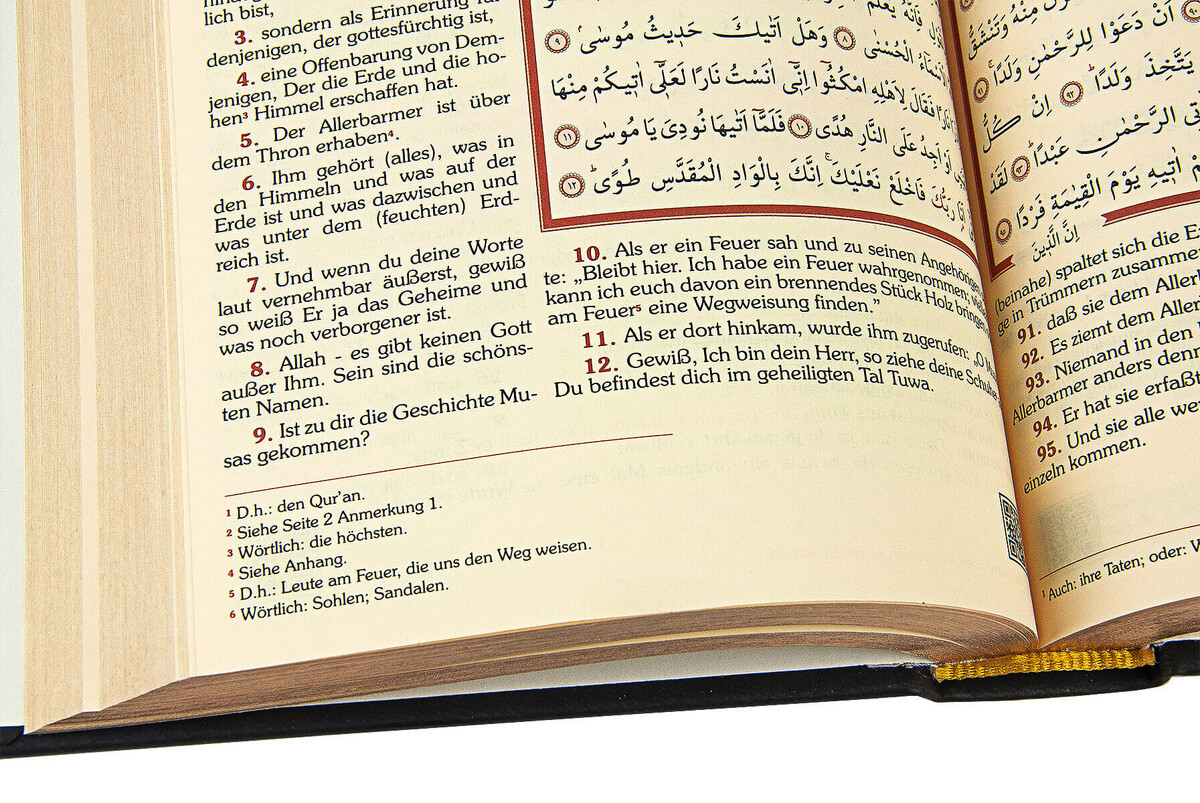 lich bist,
3. sondern als Erinnerung für
denjenigen, der gottesfürchtig ist,
4. eine Offenbarung von Dem-
jenigen, Der die Erde und die ho-
hen³ Himmel erschaffen hat.
5. Der Allerbarmer ist über
dem Thron erhaben⁴.
6. Ihm gehört (alles), was in
den Himmeln und was auf der
Erde ist und was dazwischen und
was unter dem (feuchten) Erd-
reich ist.
7. Und wenn du deine Worte
laut vernehmbar äußerst, gewiß
so weiß Er ja das Geheime und
was noch verborgener ist.
8. Allah - es gibt keinen Gott
außer Ihm. Sein sind die schöns-
ten Namen.
9. Ist zu dir die Geschichte Mu-
sas gekommen?
فَاِنَّهُ يَعْلَمُ
الْاَسْمَٓاءُ الْحُسْنٰى ٨ وَهَلْ اَتٰيكَ حَدٖيثُ مُوسٰىۢ ٩
نَارًا فَقَالَ لِاَهْلِهِ امْكُثُٓوا اِنّٖٓي اٰنَسْتُ نَارًا لَعَلّٖٓي اٰتٖيكُمْ مِنْهَا
اَوْ اَجِدُ عَلَى النَّارِ هُدًى ١٠ فَلَمَّٓا اَتٰيهَا نُودِيَ يَا مُوسٰى ١١
اَنَا۬ رَبُّكَ فَاخْلَعْ نَعْلَيْكَۚ اِنَّكَ بِالْوَادِ الْمُقَدَّسِ طُوًىۜ ١٢
10. Als er ein Feuer sah und zu seinen Angehörigen
te: „Bleibt hier. Ich habe ein Feuer wahrgenommen;
kann ich euch davon ein brennendes Stück Holz bringen
am Feuer⁵ eine Wegweisung finden.”
11. Als er dort hinkam, wurde ihm zugerufen: „O
12. Gewiß, Ich bin dein Herr, so ziehe deine Schuhe
Du befindest dich im geheiligten Tal Tuwa.
¹ D.h.: den Qur’an.
² Siehe Seite 2 Anmerkung 1.
³ Wörtlich: die höchsten.
⁴ Siehe Anhang.
⁵ D.h.: Leute am Feuer, die uns den Weg weisen.
⁶ Wörtlich: Sohlen; Sandalen.
مِنْهُ وَتَنْشَقُّ
٩٠ اَنْ دَعَوْا لِلرَّحْمٰنِ وَلَدًاۚ ٩١
يَتَّخِذَ وَلَدًاۜ ٩٢ اِنْ كُلُّ
الرَّحْمٰنِ عَبْدًاۜ ٩٣ لَقَدْ
اٰتٖيهِ يَوْمَ الْقِيٰمَةِ فَرْدًا ٩٥
اِنَّ الَّذٖينَ
(beinahe) spaltet sich die
ge in Trümmern zusammen
91. daß sie dem
92. Es ziemt dem
93. Niemand in den
Allerbarmer anders denn
94. Er hat sie erfaßt
95. Und sie alle
einzeln kommen.
¹ Auch: ihre Taten; oder: